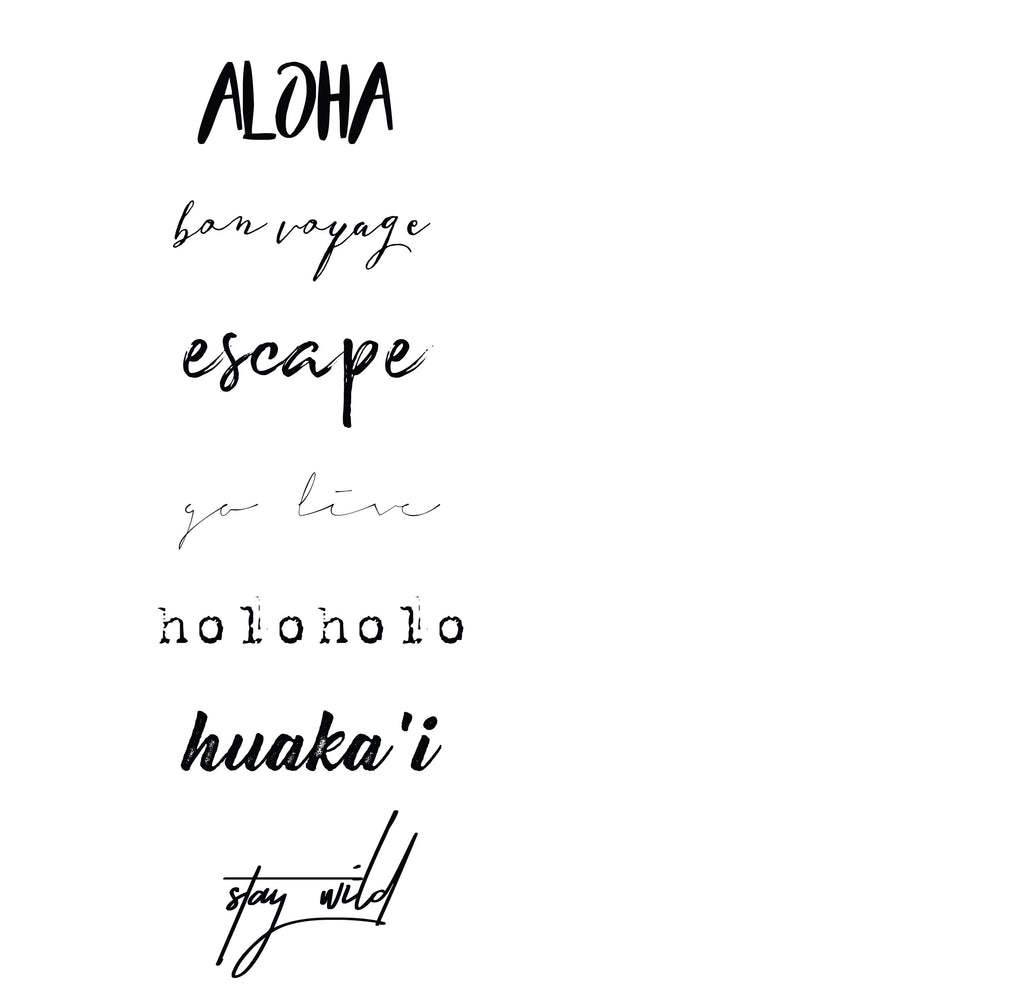 ALOHA
bon voyage
escape
go live
holoholo
huaka'i
stay wild